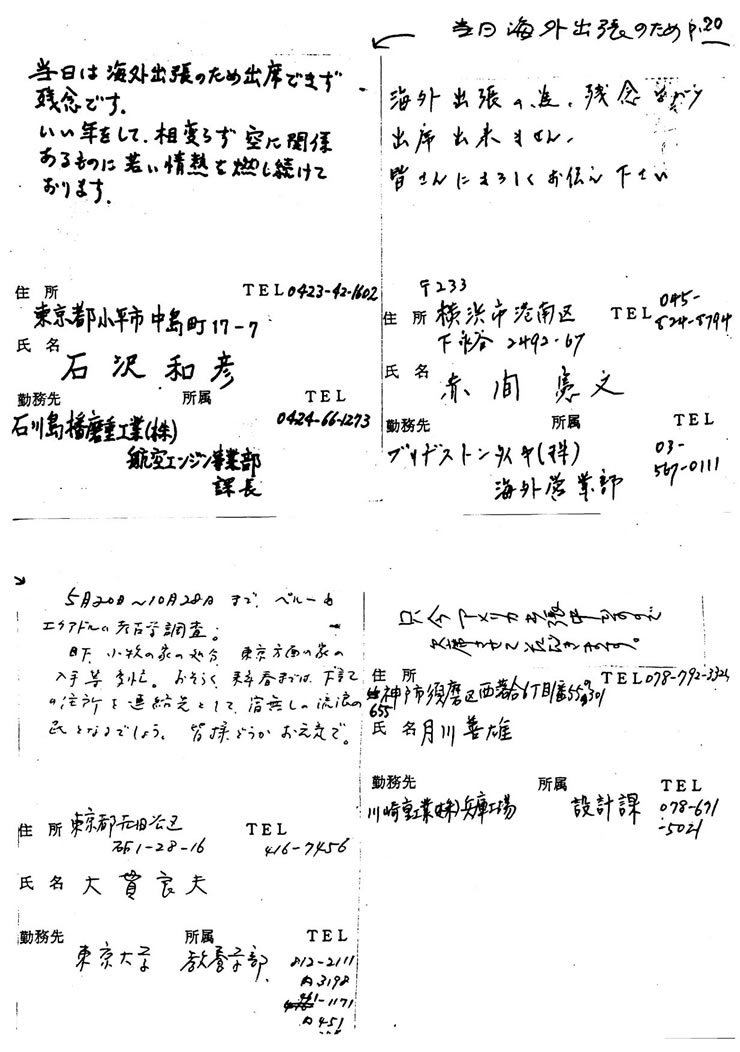 当日海外出張のため P.20
当日は海外出張のため出席できず
残念です。
いい年をして、相変らず空に関係
あるものに若い情熱を燃し続けて
おります。
住所 TEL 0423-42-1602
東京都小平市中島町17-7
氏名
石沢和彦
勤務先 所属 TEL
石川島播磨重工業(株) 0424-66-1273
航空エンジン事業部
課長
海外出張の為、残念ながら
出席出来ません。
皆さんによろしくお伝え下さい
〒233
住所 横浜市港南区 TEL 045-
下永谷 2492-67 824-8794
氏名
赤間憲文
勤務先 所属 TEL
ブリヂストンタイヤ(株) 03-
海外営業部 567-0111
5月20日〜10月28日まで、ペルー
エクアドルの考古学調査。
目下、小牧の家の処分、東京方面の家の
入手等多忙。おそらく来春までは下記
の住所を連絡先として、宿無しの流浪の
民となるでしょう。皆様どうかお元気で。
住所 東京都
1-28-16 TEL 416-7456
氏名 大貫良夫
勤務先 所属 TEL
東京大学 教養学部 812-2111
内3198
-1171
内451
只今アメリカ出張中なので
欠席させて
住所 TEL 078-792-3324
神戸市須磨区西落合6丁目1番55の301
655
氏名 月川善雄
勤務先 所属 TEL
川崎重工業(株)兵庫工場 設計課 078-671
-5021